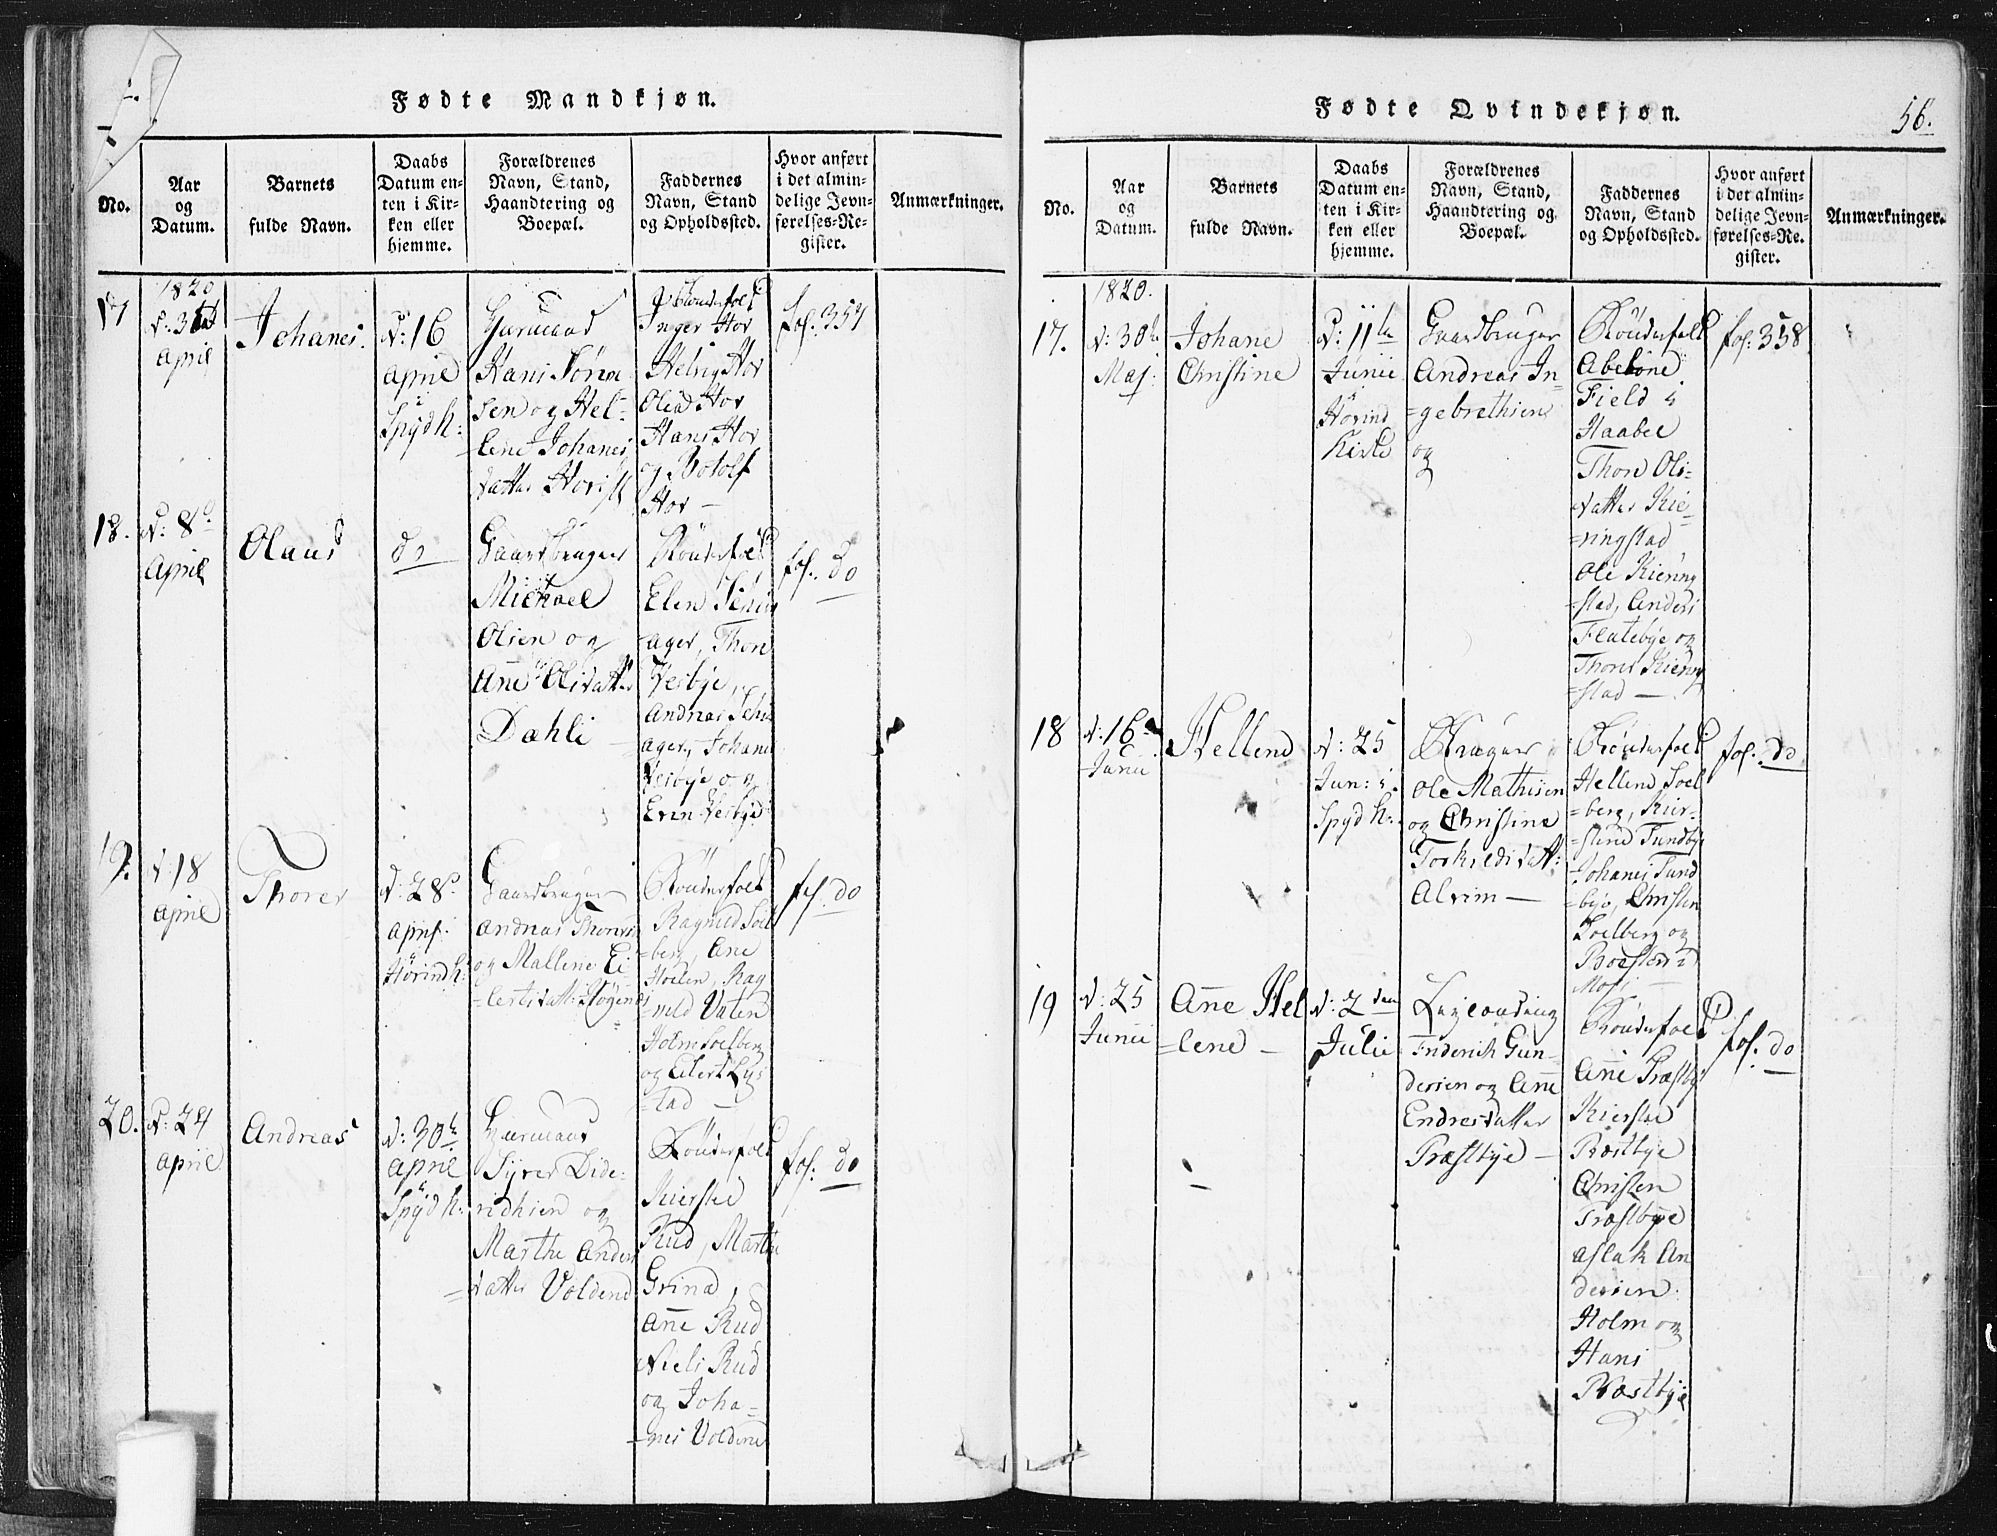 Fødte Mandkjøn.
No.
Aar
og
Datum.
Barnets
fulde Navn.
Daabs
Datum en-
ten i Kir-
ken eller
hjemme.
Forældrenes
Navn, Stand,
Haandtering og
Boepæl.
Faddernes
Navn, Stand
og Opholdssted.
Hvor anført
i det almin-
delige Jevn-
førelses-Re-
gister.
Anmærkninger.
17
1820
April
Johanes.
d: 16
April
i
Spyd k:
Huusmand
Hans Sören
sen og Hel-
lene Johanes
datter Hov
Bönderfolk
Inger Hov
Helvig Hov
Olia Hov
Hans Hov
og Botolf
Hov —
fol. 357
18.
d: 8de
April
Olaus
do
Gaardbruger
Michael
Olsen og
Ane Olsdatter
Dahli —
Bönderfolk
Elen
ager, Thore
Vesbye,
Andreas
ager, Johane
Vesbye og
Even Vesbye
fol. do
19.
d: 18
April
Thorer
d: 28de
April
i
Hörind k:
Gaardbruger
Andreas Thores
og Mallene Ei
=lertsdatt:
Bönderfolk
Ragnild Soel
=berg, Ane
Hoelen, Rag
=nild Vaten
Holm Soelberg
og Eilert Lys
=tad —
fol. do
20.
d: 24
April
Andreas
d: 30te
April
i
Spyd k:
Huusmand
Syver Dide-
richsen og
Marthe Anders
=datter Voldene
Bönderfolk
Kierstie
Rud, Marthe
Grina,
Ane Rud
Niels Rud
og Joha-
=nes Voldene
fol. do
Fødte Qvindekjøn.
56.
No.
Aar
og
Datum.
Barnets
fulde Navn.
Daabs
Datum en-
ten i Kir-
ken eller
hjemme.
Forældrenes
Navn, Stand,
Haandtering og
Boepæl.
Faddernes
Navn, Stand
og Opholdssted.
Hvor anført
i det almin-
delige Jevn-
førelses-Re-
gister.
Anmærkninger.
17.
1820.
d: 30te
Maj:
Johane
Christine
d: 11te
Junii
i
Hörind
Kirke
Gaardbruger
Andreas In-
=gebrethsen
og
Bönderfolk
Abelone
Field i
Haabel
Thore Ols-
datter Kie-
=ringstad
Ole Kiering
=stad, Anders
Flatebye og
Thore Kiering
=stad —
fol: 358
18
d: 16de
Junii
Hellene
d: 25
Jun: i
Spyd k:
Bruger
Ole Mathisen
og Christine
Torkildsdatt:
Alvim —
Bönderfolk
Hellene Soel
=berg, Kier-
=stine Tundbye
Johanes Tund
=bye, Christen
Soelberg og
fol. do
19
d: 25
Junii
Ane Hel
=lene —
d: 2den
Julii
Friderich Gun-
dersen og Ane
Endresdatter
Præstbye —
Bönderfolk
Ane Præstbye
Kierstie
Præstbye
Christen
Præstbye
Aslak An
dersen
Holm og
Hans
Præstbye
fol. do